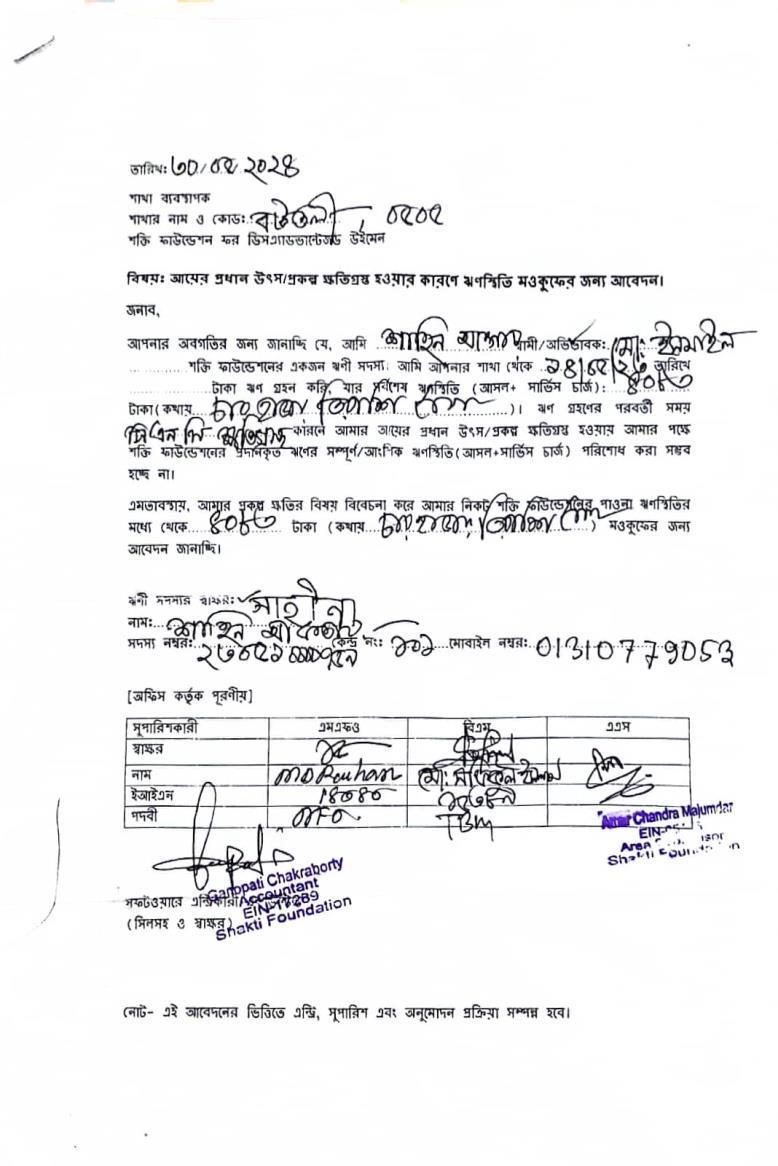 তারিখ: ৩০/০৫/২০২৪
শাখা ব্যবস্থাপক
শাখার নাম ও কোড: বটতলী, ০৫০৫
শক্তি ফাউন্ডেশন ফর ডিসএ্যাডভান্টেজড উইমেন
বিষয়: আয়ের প্রধান উৎস/প্রকল্প ক্ষতিগ্রস্ত হওয়ার কারণে ঋণস্থিতি মওকুফের জন্য আবেদন।
জনাব,
আপনার অবগতির জন্য জানাচ্ছি যে, আমি শাহিন আক্তার স্বামী/অভিভাবক: মো: ইসমাইল
শক্তি ফাউন্ডেশনের একজন ঋণী সদস্য। আমি আপনার শাখা থেকে ১৪/০৫/২৩ তারিখে
টাকা ঋণ গ্রহন করি, যার সর্বশেষ ঋণস্থিতি (আসল+ সার্ভিস চার্জ): ৪০৮৩
টাকা(কথায় চার হাজার তিরাশি )। ঋণ গ্রহণের পরবর্তী সময়
সি এন জি ক্ষতিগ্রস্ত কারনে আমার আয়ের প্রধান উৎস/প্রকল্প ক্ষতিগ্রস্ত হওয়ায় আমার পক্ষে
শক্তি ফাউন্ডেশনের প্রদানকৃত ঋণের সম্পূর্ণ/আংশিক ঋণস্থিতি(আসল+সার্ভিস চার্জ) পরিশোধ করা সম্ভব
হচ্ছে না।
এমতাবস্থায়, আমার প্রকল্প ক্ষতির বিষয় বিবেচনা করে আমার নিকট শক্তি ফাউন্ডেশনের পাওনা ঋণস্থিতির
মধ্যে থেকে ৪০৮৩ টাকা (কথায় চার হাজার তিরাশি ) মওকুফের জন্য
আবেদন জানাচ্ছি।
ঋণী সদস্যার স্বাক্ষর: সাহীনা
নাম: শাহিন আক্তার
সদস্য নম্বর: কেন্দ্র নং: ১০১ মোবাইল নম্বর: 01310779053
[অফিস কর্তৃক পূরণীয়]
সুপারিশকারী এমএফও বিএম এএস
স্বাক্ষর
নাম MD Rouhan
ইআইএন 18080
পদবী MFO TBM
Amar Chandra Majumdar
EIN-
Area
Shakti Foundation
Ganopati Chakraborty
Accountant
EIN-17289
Shakti Foundation
সফটওয়ারে এন্ট্রিকারী
(সিলসহ ও স্বাক্ষর)
নোট- এই আবেদনের ভিত্তিতে এন্ট্রি, সুপারিশ এবং অনুমোদন প্রক্রিয়া সম্পন্ন হবে।